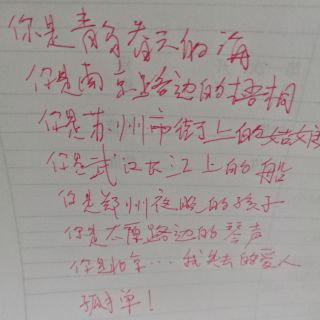 你是青岛春天的海
你是南京路边的梧桐
你是苏州市街上的姑娘
你是武汉长江上的船
你是郑州夜晚的孩子
你是太原路边的琴声
你是北京…我失去的爱人
孤单！